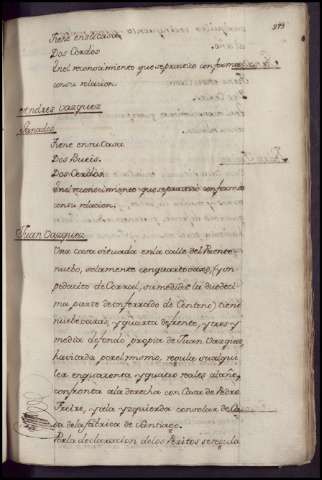 373
Tiene en su Casa
Dos Cerdos
En el reconocimiento que se practico conforma
con su relacion.
Andres Vazquez
Ganados
Tiene en su Casa
Dos Bueis.
Dos Cerdos.
En el reconocimiento que se practico conforma
con su relacion.
Juan Vazquez
Una casa situada en la calle del
nuebo, solamente con quarto vajo, y un
pedacito de Corral, su medida la duodeci
ma parte de un ferrado de Centeno, tiene
nuebe varas, y quarta de frente, y tres y
media de fondo, propia de Juan Vazquez
havitada por el mismo, regula su alqui
ler en quarenta y quatro reales al año,
confronta a la derecha con Casa de Pedro
Freire, y a la yzquierda con solar de Ca
sa de la fabrica de Santiago.
Por la declaracion de los Peritos se regula